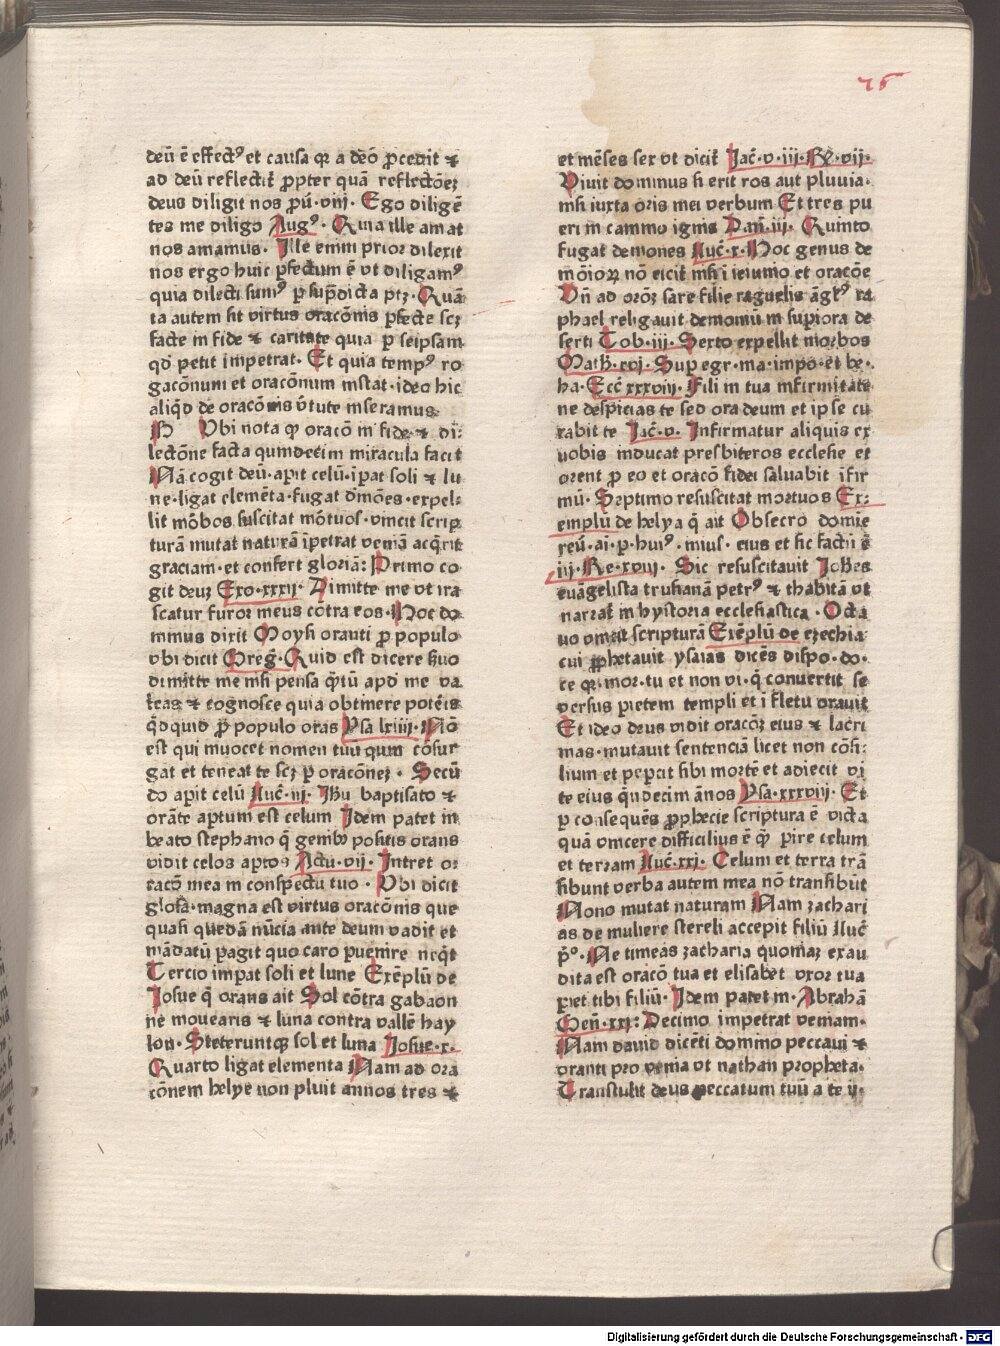 75
deū ē effectꝰ et causa qꝛ a deo ꝓcedit ⁊
ad deū reflectit̄ ꝓpter quā reflectōeꝫ
deus diligit nos ꝓu̅·viij· Ego diligē
tes me diligo Augꝰ· Quia ille amat
nos amamus· Ille enim prior dilexit
nos ergo huic ꝑfectum ē vt diligamꝰ
quia dilecti sumꝰ ꝑ sup̄dicta ptꝫ· Quā
ta autem sit virtus oracōnis ꝑfecte scꝫ
facte in fide ⁊ caritate quia ꝑ seipsam
qd̄ petit impetrat· Et quia tempꝰ ro
gacōnum et oracōnum instat·ideo hic
aliqd̄ de oracōnis v̄tute inseramus·
Vbi nota ꝙ oracō in fide ⁊ di⸗
lectōne facta qumdecim miracula facit
Nā cogit deū·aꝑit celū·īpat soli ⁊ lu
ne·ligat elemēta·fugat dmōes·expel⸗
lit mōbos suscitat mōtuos·vincit scrip
turā mutat naturā īpetrat veniā acq̄rit
graciam·et confert gloriā: Primo co
git deuꝫ Exo·xxxij· Dimitte me vt ira
scatur furor meus cōtra eos·Hoc do
minus dixit Moysi oranti ꝓ populo
vbi dicit Greg̅·Quid est dicere s̄uo
dimitte me nisi pensa q̄tū apd̄ me va
leas ⁊ cognosce quia obtinere potēis
q̄dquid ꝓ populo oras Ysa lxiiij·Nō
est qui inuocet nomen tuū qum cōsur
gat et teneat te scꝫ ꝑ oracōneꝫ· Secū
do aꝑit celū Luc̄·iij· Ihu baptisato ⁊
orāte aꝑtum est celum Idem patet in
beato stephano q̄ genibꝫ positis orans
vidit celos aꝑtos Actu·vij· Intret or
racō mea in conspectu tuo· Vbi dicit
glosa·magna est virtus oracōnis que
quasi quedā nūcia ante deum vadit et
mādatū ꝑagit quo caro ꝑuenire neq̄t
Tercio imꝑat soli et lune Exēplū de
Josue q̄ orans ait Sol cōtra gabaon
ne mouearis ⁊ luna contra vallē hay
lon· Steteruntqꝫ sol et luna Josue·x·
Quarto ligat elementa Nam ad ora
cōnem helye non pluit annos tres ⁊
et mēses sex vt dicit̄ Jac̄·v·iij·Re̅·vij·
Viuit dominus si erit ros aut pluuia·
nisi iuxta oris mei verbum Et tres pu
eri in camino ignis Dani̅·iij· Quinto
fugat demones Luc̄·x·Hoc genus de
mōioꝝ nō eicit̄ nisi ī ieiunio et oracōe
Vn̄ ad orōꝫ sare filie raguelis āgl̄ꝰ ra
phael religauit demoniū in suꝑiora de
serti Tob·iij· Sexto expellit morbos
Math̅·xvj· Sup egr·ma·impo·et be·
ha·Ecc̄ xxxviij· Fili in tua infirmitate
ne despicias te sed ora deum et ipse cu
rabit te Jac̄·v· Infirmatur aliquis ex
vobis inducat presbiteros ecclesie et
orent ꝑ eo et oracō fidei saluabit īfir
mū· Septimo resuscitat mortuos Ex⸗
emplū de helya q̄ ait Obsecro domie
reū·ai·ꝑ·huiꝰ·mius· eius et sic factū ē
iij·Re·xvij· Sic resuscitauit Johēs
euāgelista truhanā petrꝰ ⁊ thabitā vt
narrat̄ in hystoria ecclesiastica· Octa
uo vincit scripturā Exēplū de ezechia
cui ꝓphetauit ysaias dicēs dispo·do·
te qꝛ·mor·tu et non vi·q̄ conuertit se
versus pietem templi et ī fletu orauit
Et ideo deus vidit oracōꝫ eius ⁊ lacri
mas·mutauit sentenciā licet non cōsi⸗
lium et peꝑcit sibi mortē et adiecit vi
te eius q̄ndecim ānos Ysa·xxxviij· Et
ꝑ consequēs ꝓphecie scriptura ē victa
quā vincere difficilius ē q̄ꝫ ꝑire celum
et terram Luc̄·xxj· Celum et terra trā
sibunt verba autem mea nō transibūt
Nono mutat naturam Nam zachari
as de muliere stereli accepit filiū Luc̄
p̄°· Ne timeas zacharia quoniaꝫ exau
dita est oracō tua et elisabet vxor tua
ꝑiet tibi filiū· Idem patet in·Abrahā
Gen̄·xxj: Decimo impetrat veniam·
Nam dauid dicēti domino peccaui ⁊
oranti pro venia vt nathan propheta·
Transtulit deus peccatum tuū a te ij·
Digitalisierung gefördert durch die Deutsche Forschungsgemeinschaft · DFG